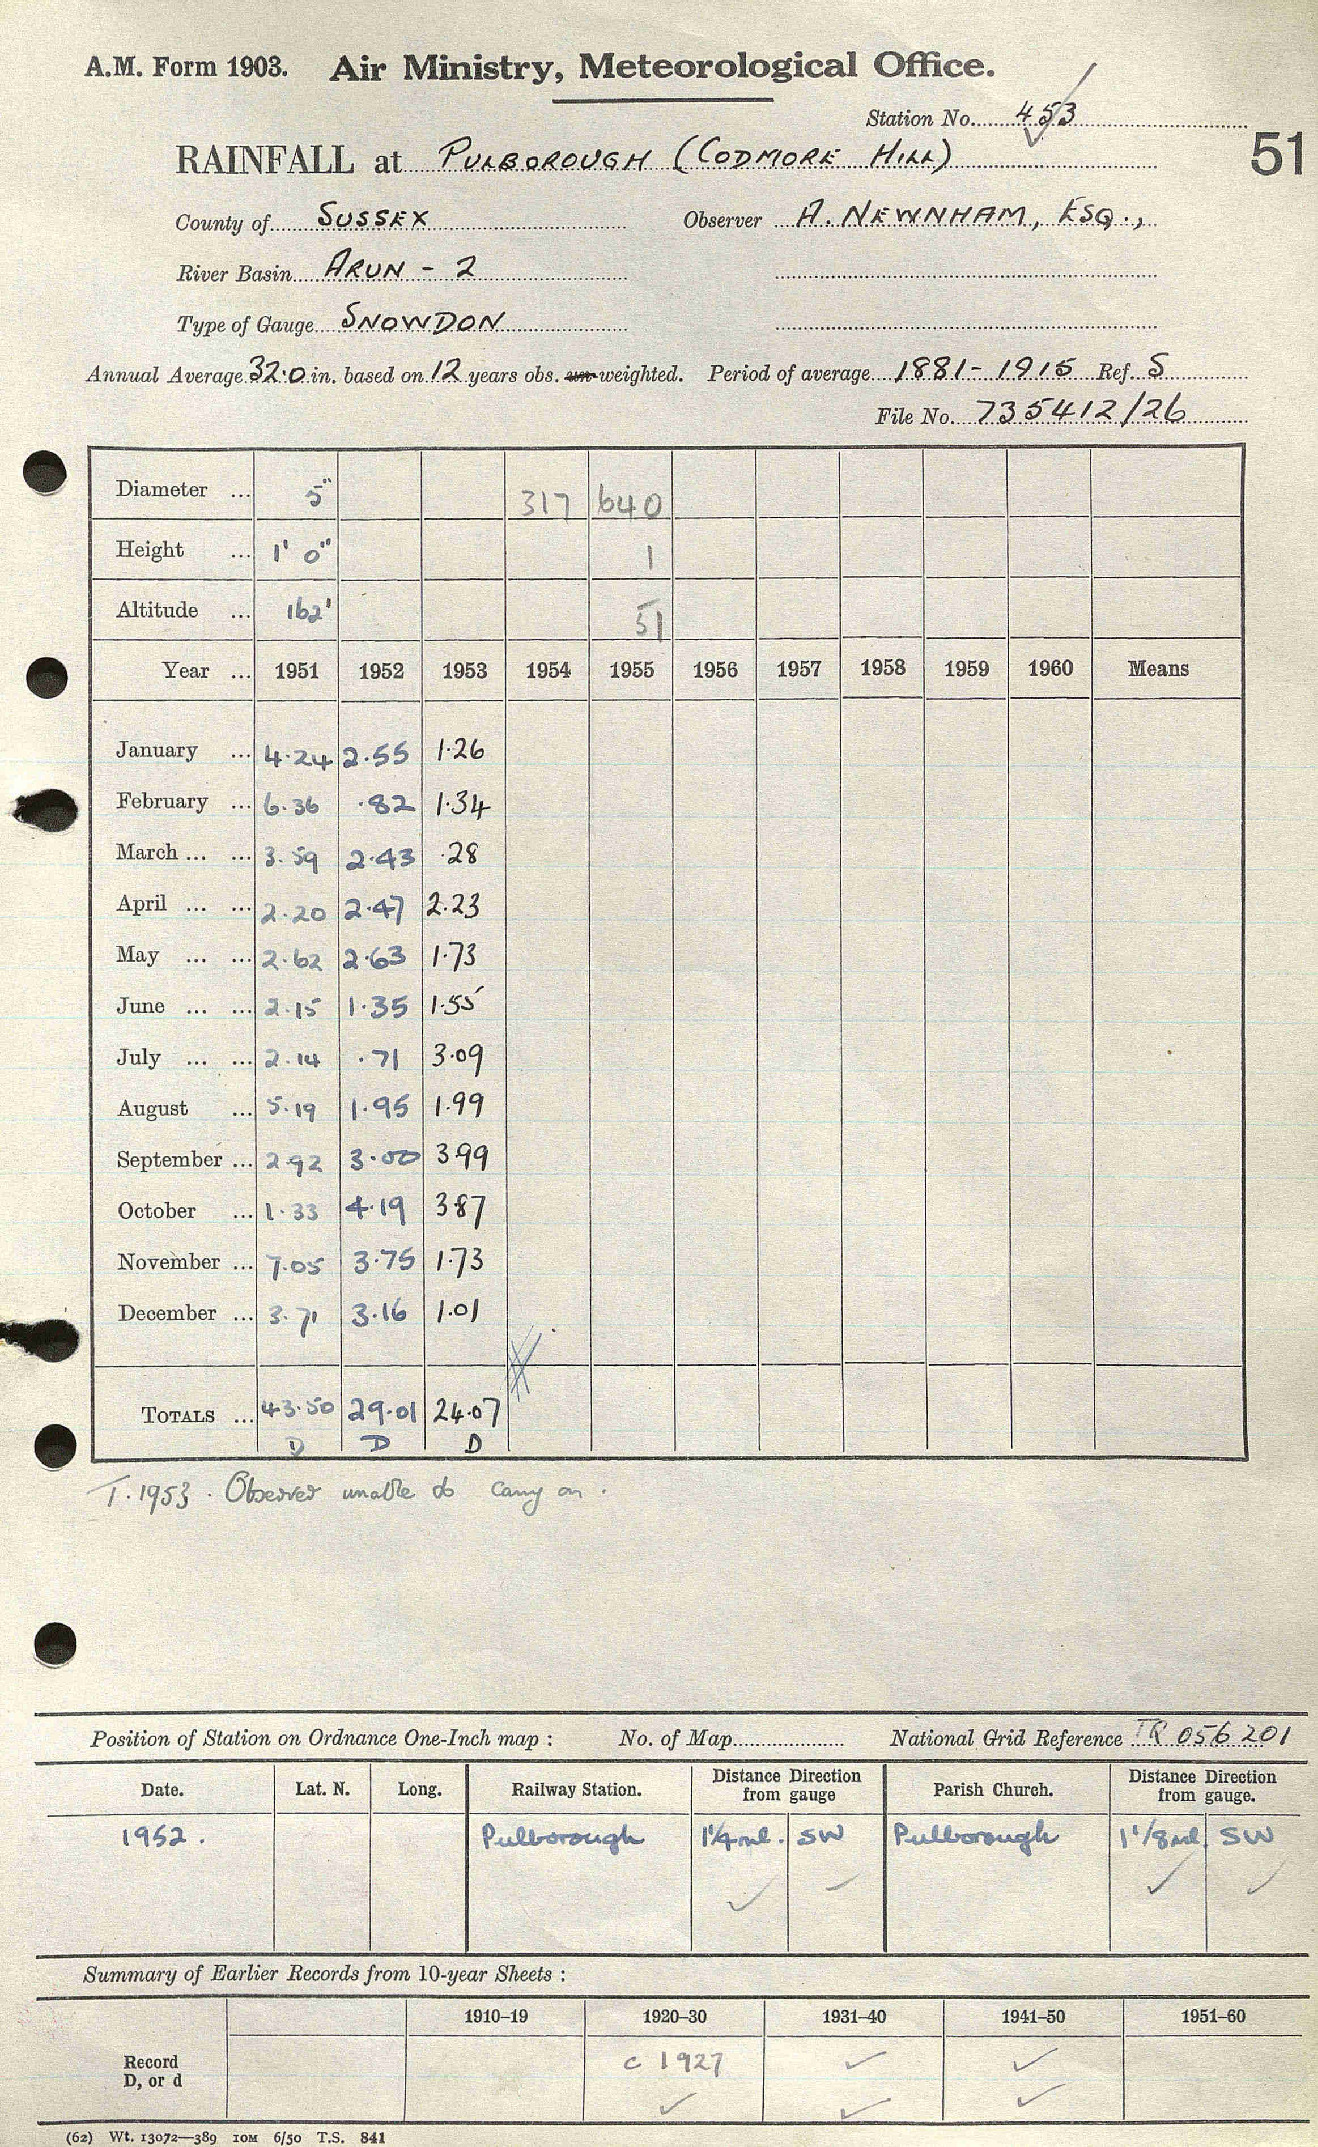 A.M. Form 1903. Air Ministry, Meteorological Office.
Station No. 453
51
RAINFALL at PULBOROUGH (CODMORE HILL)
County of SUSSEX Observer A. NEWNHAM, ESQ.,
River Basin ARUN - 2
Type of Gauge SNOWDON
Annual Average 32.0 in. based on 12 years obs. un-weighted. Period of average 1881-1915 Ref. S
File No. 735412/26
Diameter ... 5" 317 640
Height ... 1' 0" 1
Altitude ... 162' 51
Year ... 1951 1952 1953 1954 1955 1956 1957 1958 1959 1960 Means
January ... 4.24 2.55 1.26
February ... 6.36 .82 1.34
March ... ... 3.59 2.43 .28
April ... ... 2.20 2.47 2.23
May ... ... 2.62 2.63 1.73
June ... ... 2.15 1.35 1.55
July ... ... 2.14 .71 3.09
August ... 5.19 1.95 1.99
September ... 2.92 3.00 3.99
October ... 1.33 4.19 3.87
November ... 7.05 3.75 1.73
December ... 3.71 3.16 1.01
TOTALS ... 43.50 29.01 24.07
D D D
T. 1953. Observer unable to carry on.
Position of Station on Ordnance One-Inch map : No. of Map National Grid Reference TQ 056 201
Date. Lat. N. Long. Railway Station. Distance Direction from gauge Parish Church. Distance Direction from gauge.
1952. Pulborough 1¼ ml. SW Pulborough 1 1/8 ml SW
Summary of Earlier Records from 10-year Sheets :
1910–19 1920–30 1931–40 1941–50 1951–60
Record D, or d c 1927
(62) Wt. 13072—389 10M 6/50 T.S. 841